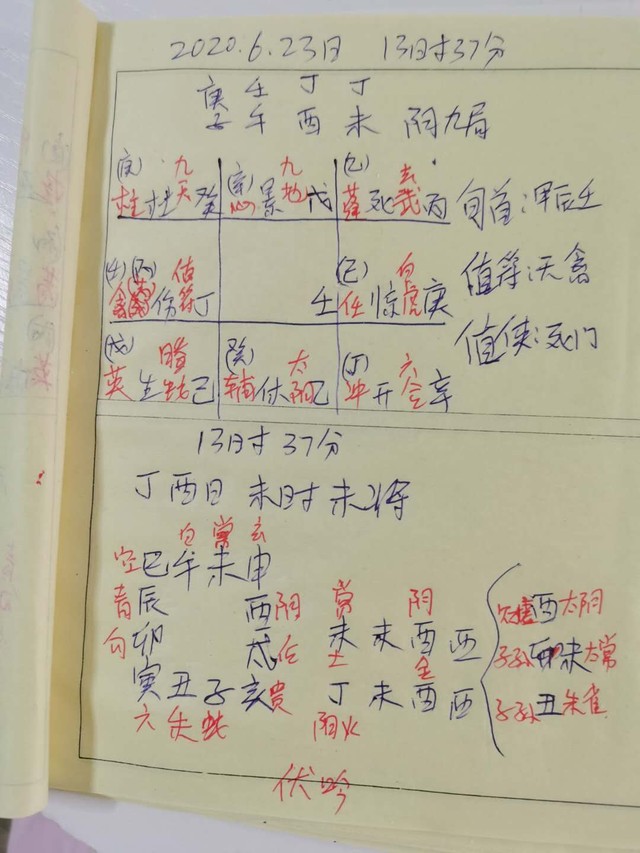 2020.6.23日 13时37分
庚 壬 丁 丁
子 午 酉 未 阴九局
(庚) 九天 柱 杜 癸 九地 心 景 戊 玄武 蓬 死 丙 旬首:甲辰壬
(壬)(丙) 值符 禽 伤 丁 壬 (己) 白虎 任 惊 庚 值符:天禽
(戊) 英 生 己 (癸) 太阴 辅 休 乙 (丁) 六合 冲 开 辛 值使:死门
13时37分
丁酉日 未时 未将
白 常 玄
空 巳 午 未 申
青 辰 酉 阴 常 阴 酉 太阴
勾 卯 未 未 酉 酉 子孙 未 太常
土 金
寅 丑 子 亥 贵 丁 未 酉 酉 子孙 丑 朱雀
六 朱 蛇 阳火
伏吟